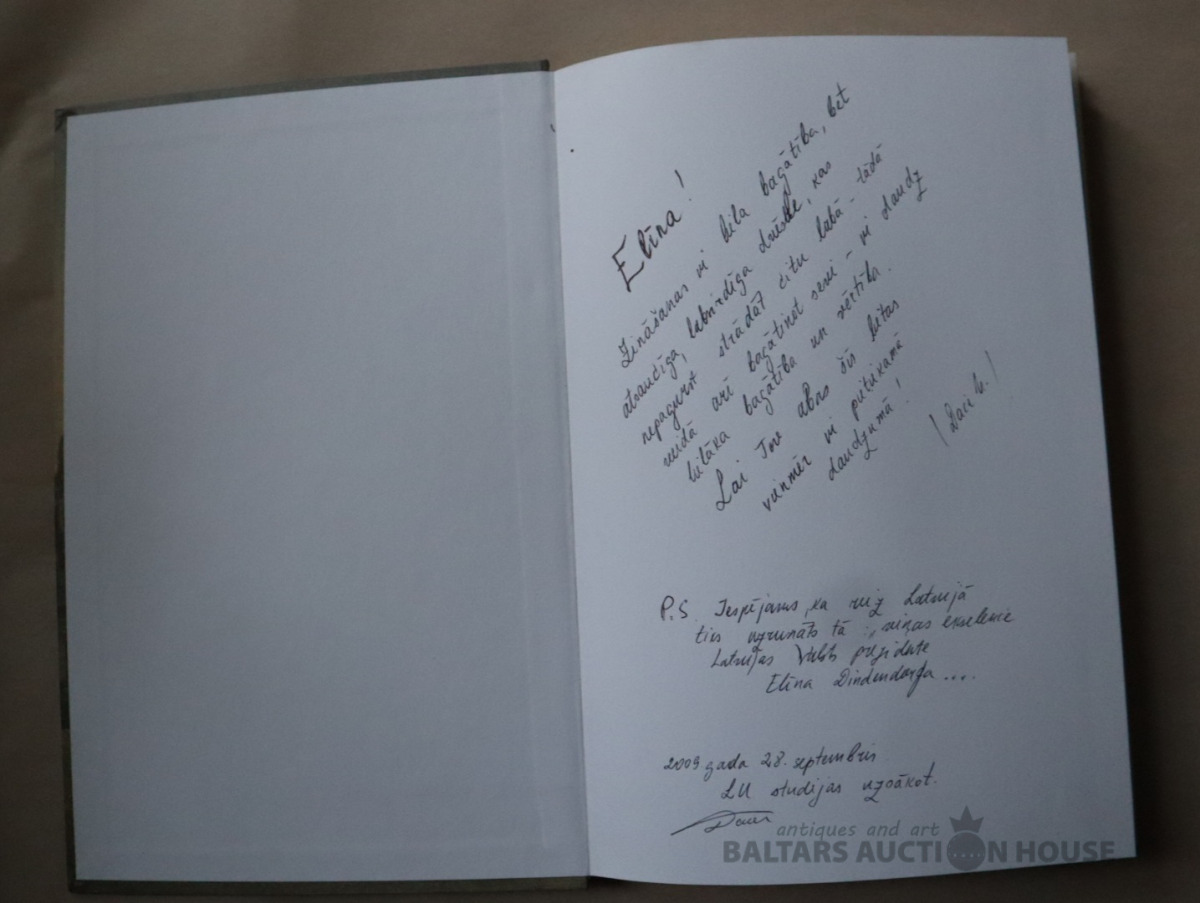 Elīna!
Zināšanas ir liela bagātība, bet
atsaucīga, labsirdīga dvēsele, kas
nepagurst strādāt citu labā - tādā
veidā arī bagātinot sevi - ir daudz
lielāka bagātība un vērtība.
Lai Tev abas šīs lietas
vienmēr ir pietiekamā
daudzumā!
/Dace
P.S. Iespējams, ka reiz Latvijā
tiks uzrunāts tā: „viņas ekselence
Latvijas Valsts prezidente
Elīna Dindendorfa....
2009 gada 28. septembris
LU studijas uzsākot.
antiques and art
BALTARS AUCTION HOUSE